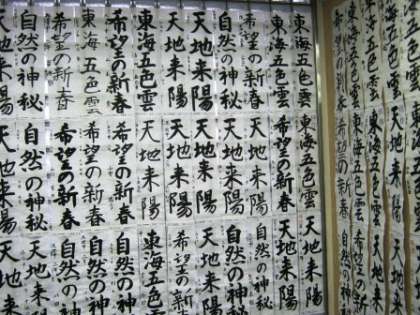 東海五色雲
東海五色雲
東海五色雲
希望の新春
希望の新春
東海五色雲
東海五色雲
希望の新春
自然の神秘
天地来陽
天地来陽
東海五色雲
希望の新春
東海五色雲
希望の新春
自然の神秘
天地来陽
天地来陽
天地来陽
東海五色雲
東海五色雲
希望の新春
東海五色雲
希望の新春
天地来陽
天地来陽
天地来陽
天地来陽
天地来陽
希望の新春
希望の新春
希望の新春
自然の神秘
天地来陽
天地来陽
自然の神秘
自然の神秘
天地来陽
天地来陽
自然の神秘
自然の神秘
天地来陽
希望の新春
東海五色雲
自然の神秘
自然の神秘
自然の神秘
天地来
天地来